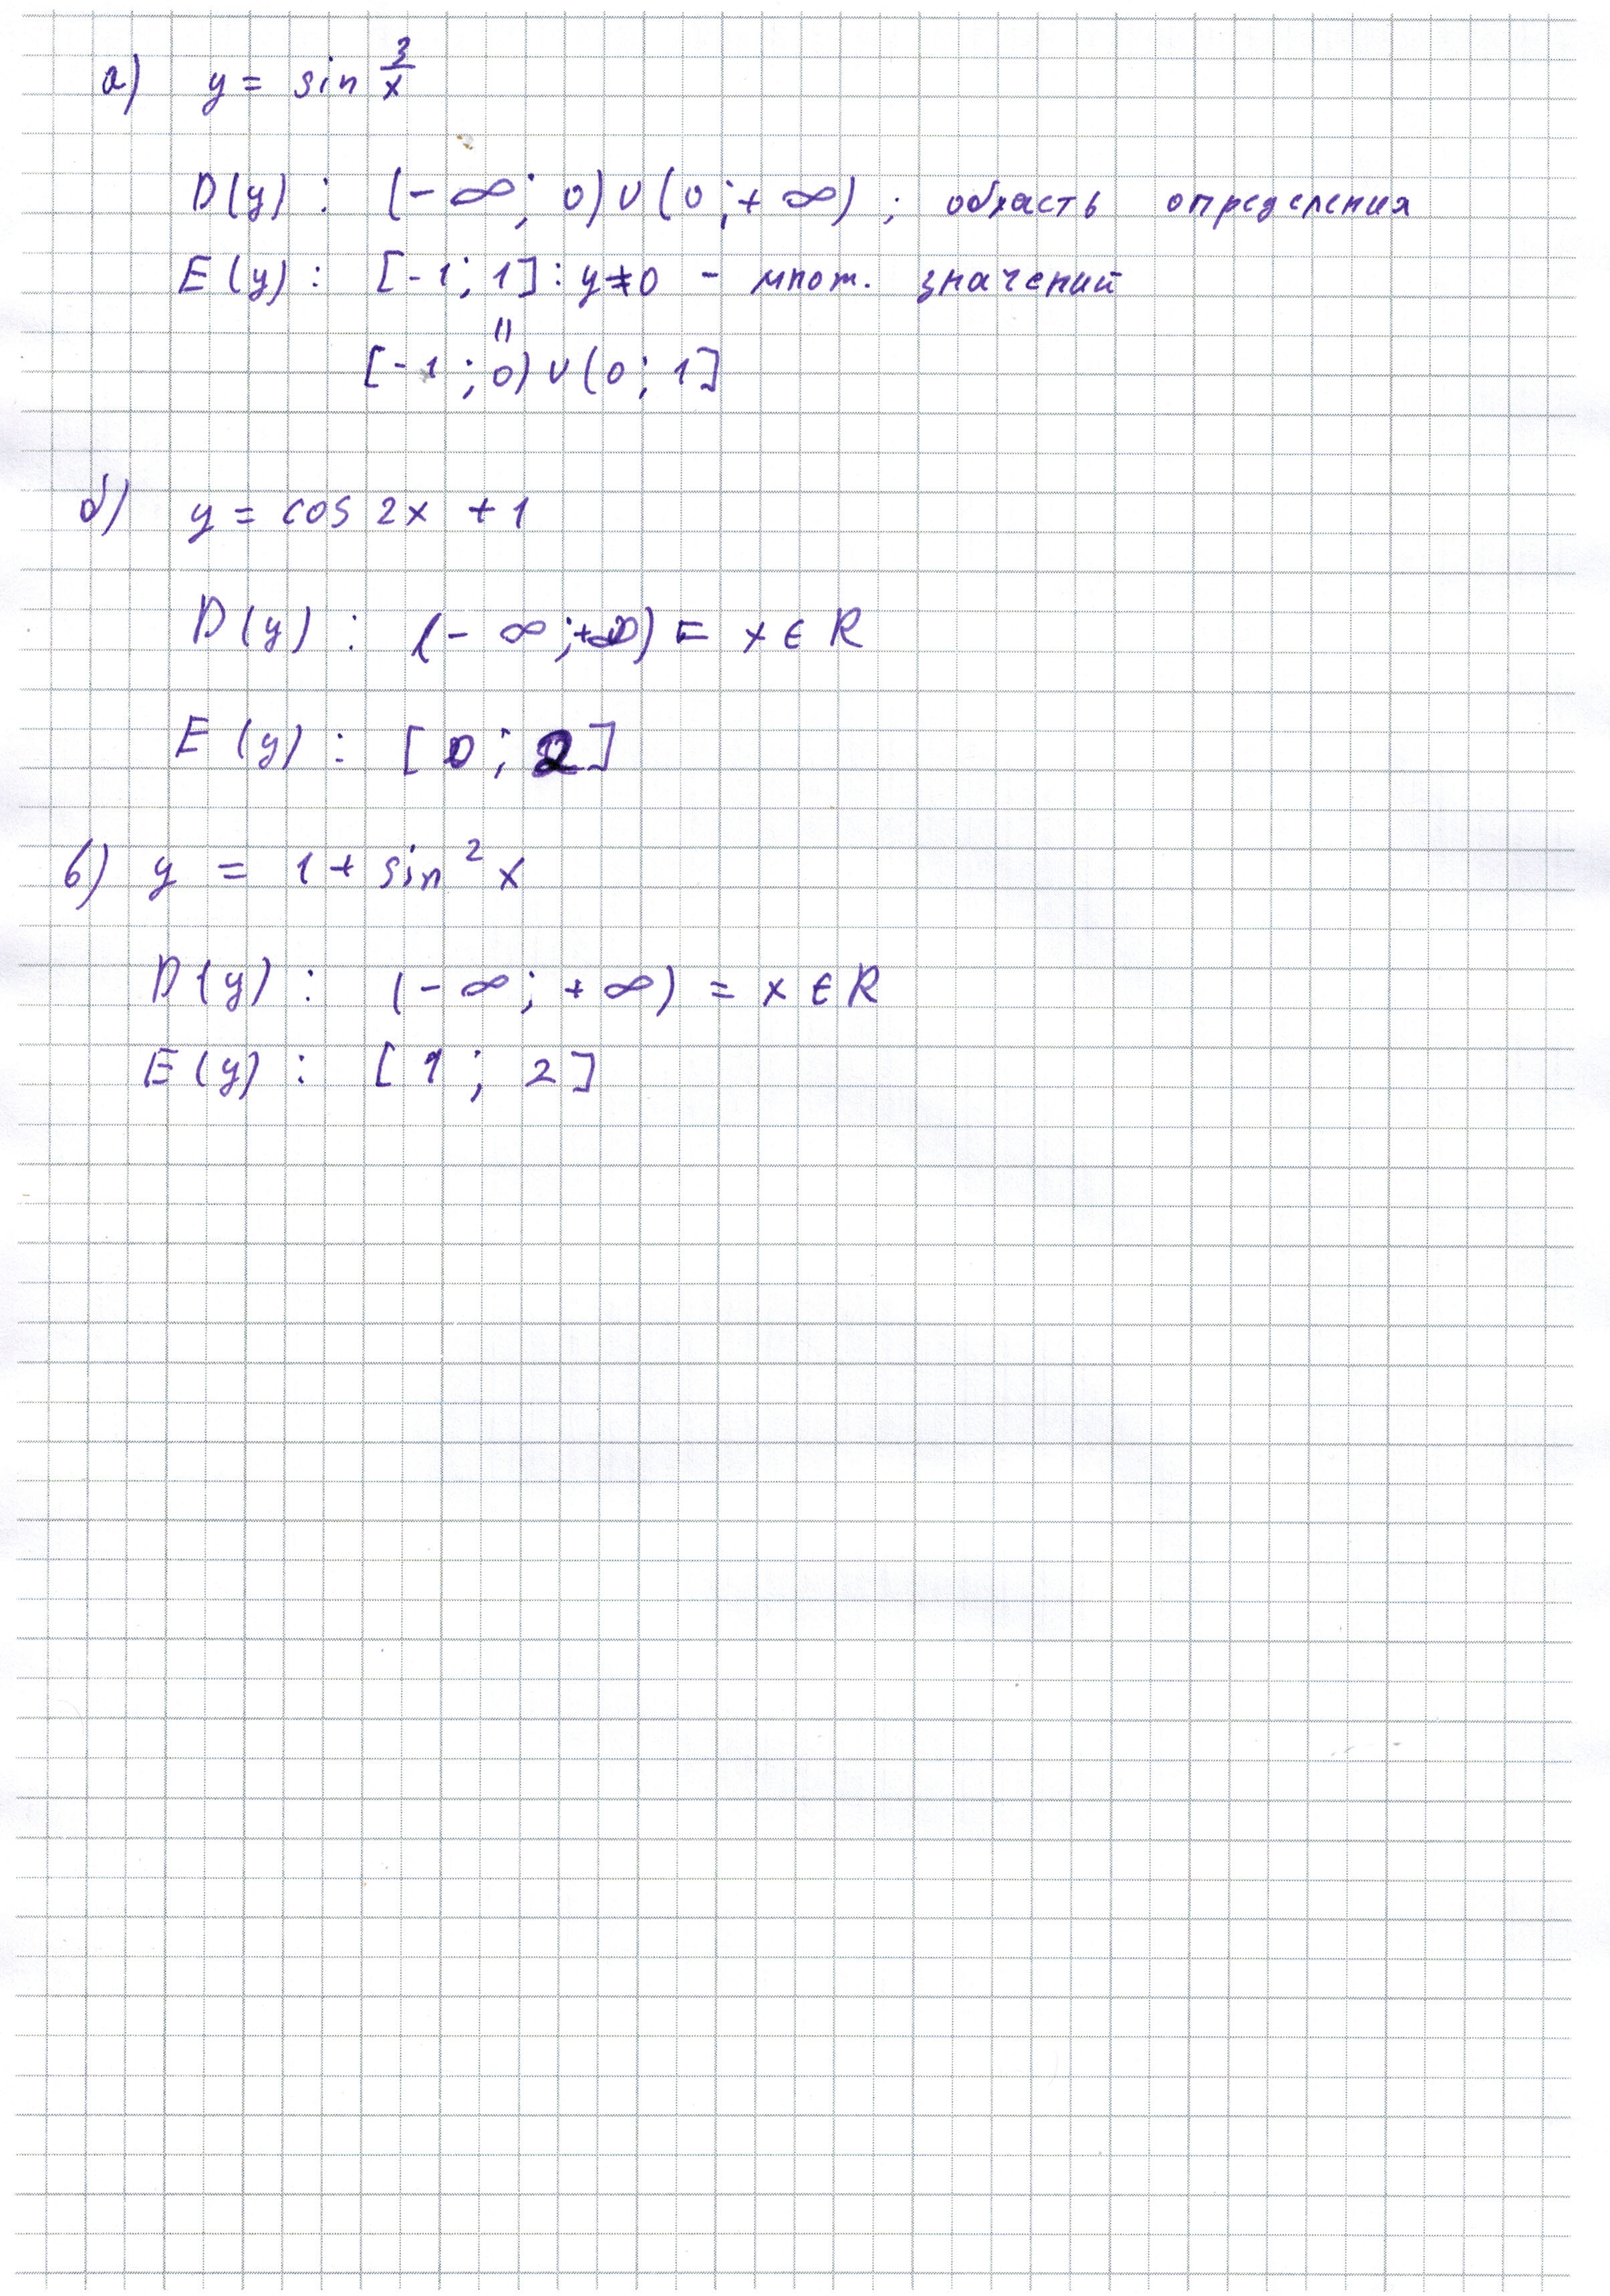 а) y = sin 3/x
D(y) : (- ∞; 0) ∪ (0; + ∞) ; область определения
E(y) : [-1; 1] : y ≠ 0 - множ. значений
"
[-1; 0) ∪ (0; 1]
б) y = cos 2x + 1
D(y) : (- ∞; +∞) = x ∈ R
E(y) : [0; 2]
в) y = 1 + sin² x
D(y) : (- ∞; + ∞) = x ∈ R
E(y) : [1; 2]